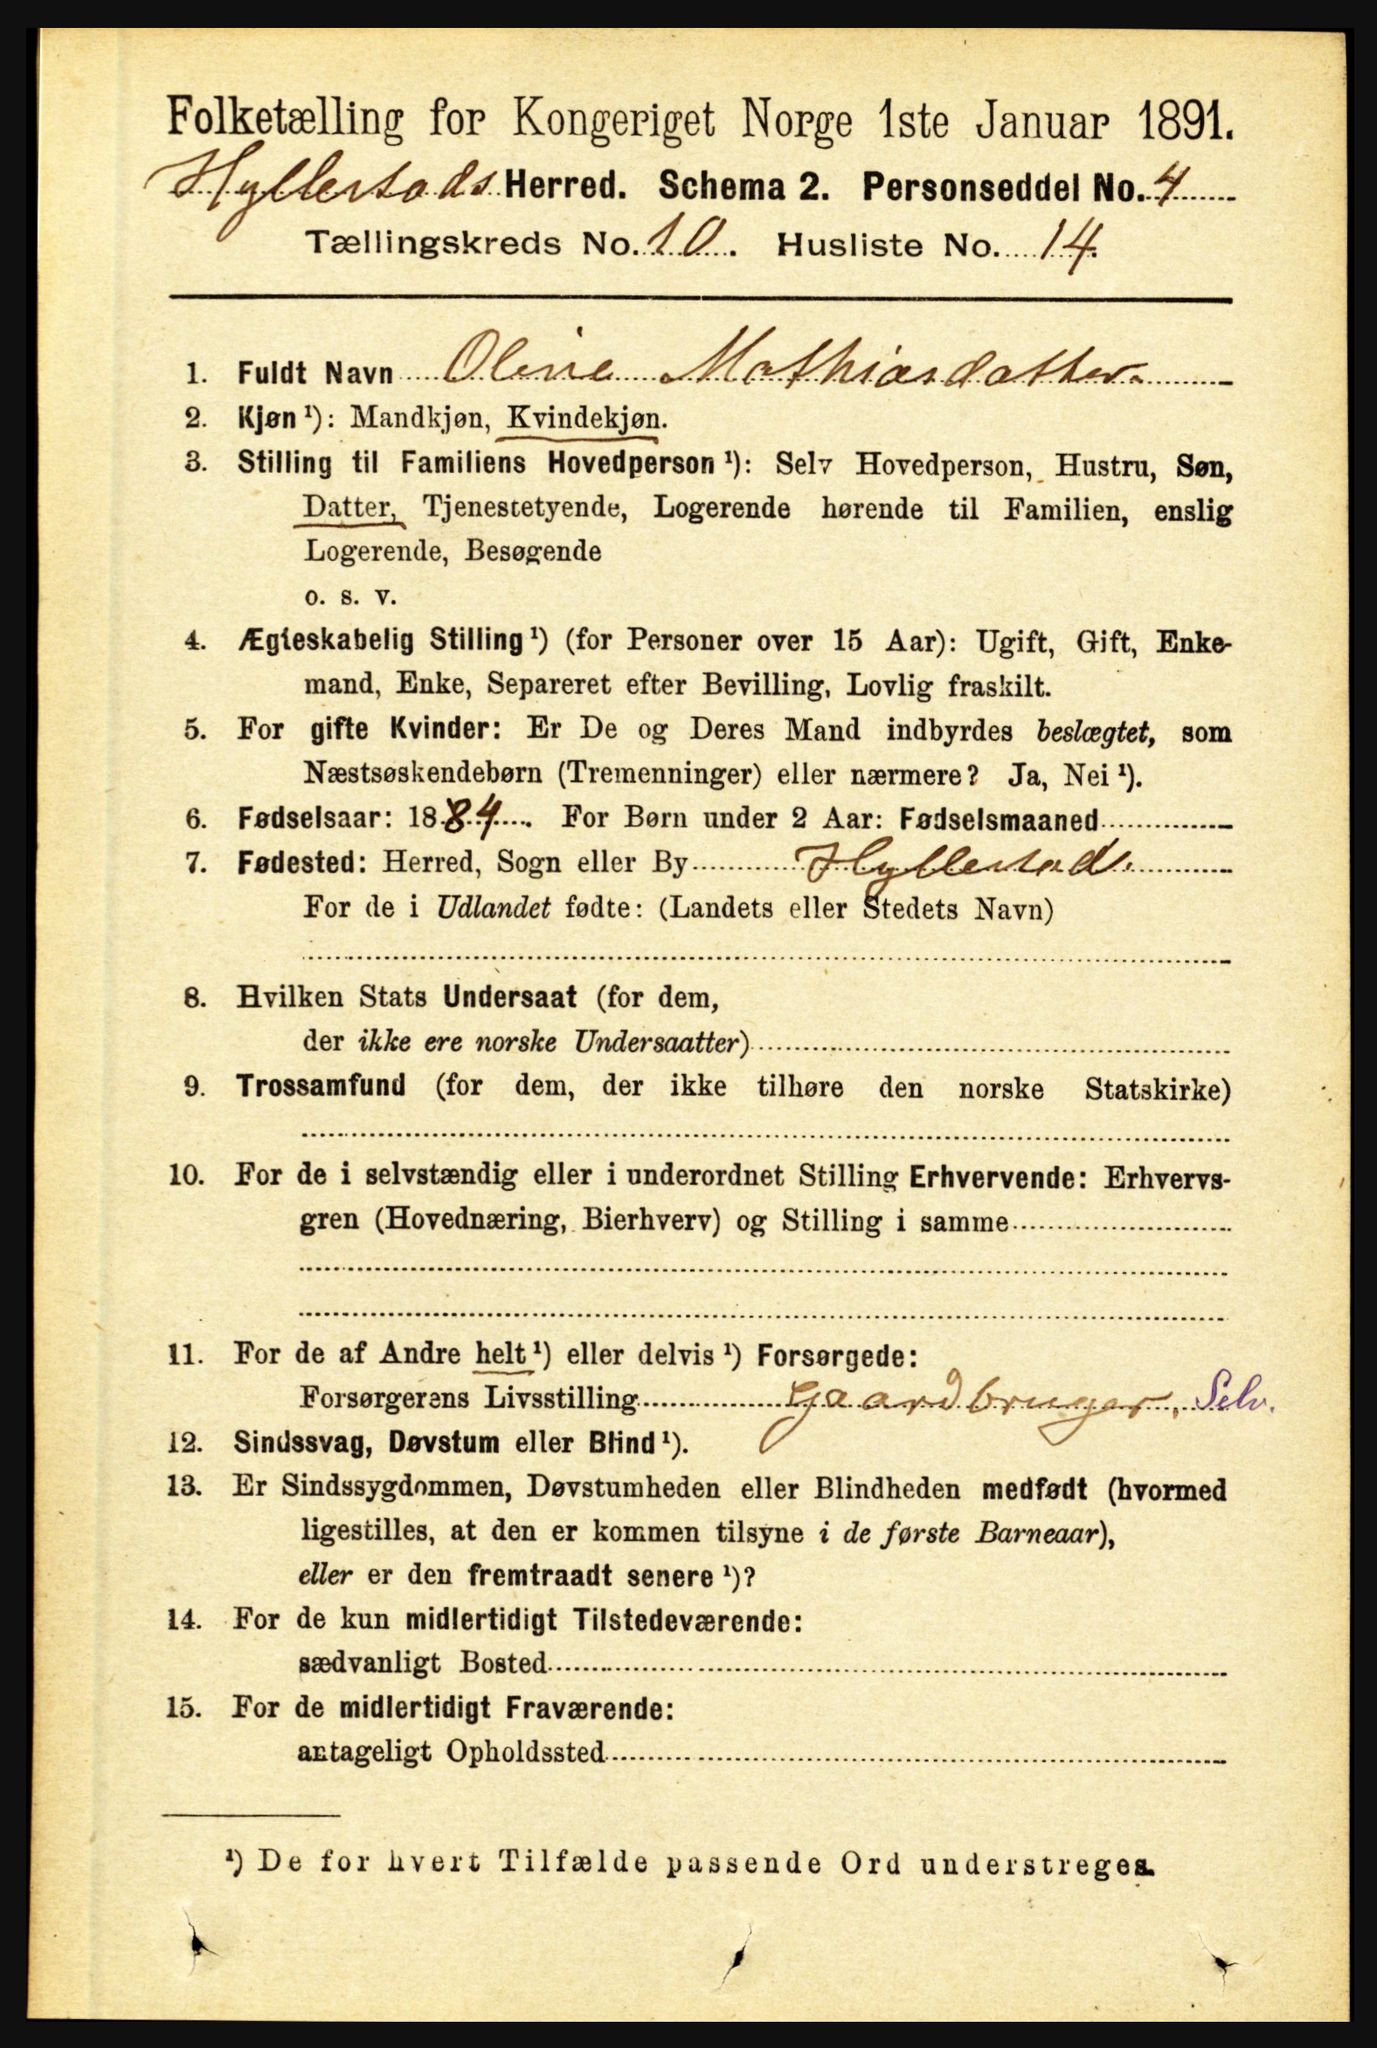 Folketælling for Kongeriget Norge 1ste Januar 1891.
Hyllestads Herred. Schema 2. Personseddel No. 4
Tællingskreds No. 10. Husliste No. 14.
1. Fuldt Navn Oline Mathiasdatter.
2. Kjøn ¹): Mandkjøn, Kvindekjøn.
3. Stilling til Familiens Hovedperson ¹): Selv Hovedperson, Hustru, Søn,
Datter, Tjenestetyende, Logerende hørende til Familien, enslig
Logerende, Besøgende
o. s. v.
4. Ægteskabelig Stilling ¹) (for Personer over 15 Aar): Ugift, Gift, Enke-
mand, Enke, Separeret efter Bevilling, Lovlig fraskilt.
5. For gifte Kvinder: Er De og Deres Mand indbyrdes beslægtet, som
Næstsøskendebørn (Tremenninger) eller nærmere? Ja, Nei ¹).
6. Fødselsaar: 1884. For Børn under 2 Aar: Fødselsmaaned
7. Fødested: Herred, Sogn eller By Hyllestad.
For de i Udlandet fødte: (Landets eller Stedets Navn)
8. Hvilken Stats Undersaat (for dem,
der ikke ere norske Undersaatter)
9. Trossamfund (for dem, der ikke tilhøre den norske Statskirke)
10. For de i selvstændig eller i underordnet Stilling Erhvervende: Erhvervs-
gren (Hovednæring, Bierhverv) og Stilling i samme
11. For de af Andre helt ¹) eller delvis ¹) Forsørgede:
Forsørgerens Livsstilling Gaardbruger, Selv.
12. Sindssvag, Døvstum eller Blind ¹).
13. Er Sindssygdommen, Døvstumheden eller Blindheden medfødt (hvormed
ligestilles, at den er kommen tilsyne i de første Barneaar),
eller er den fremtraadt senere ¹)?
14. For de kun midlertidigt Tilstedeværende:
sædvanligt Bosted
15. For de midlertidigt Fraværende:
antageligt Opholdssted
¹) De for hvert Tilfælde passende Ord understreges.